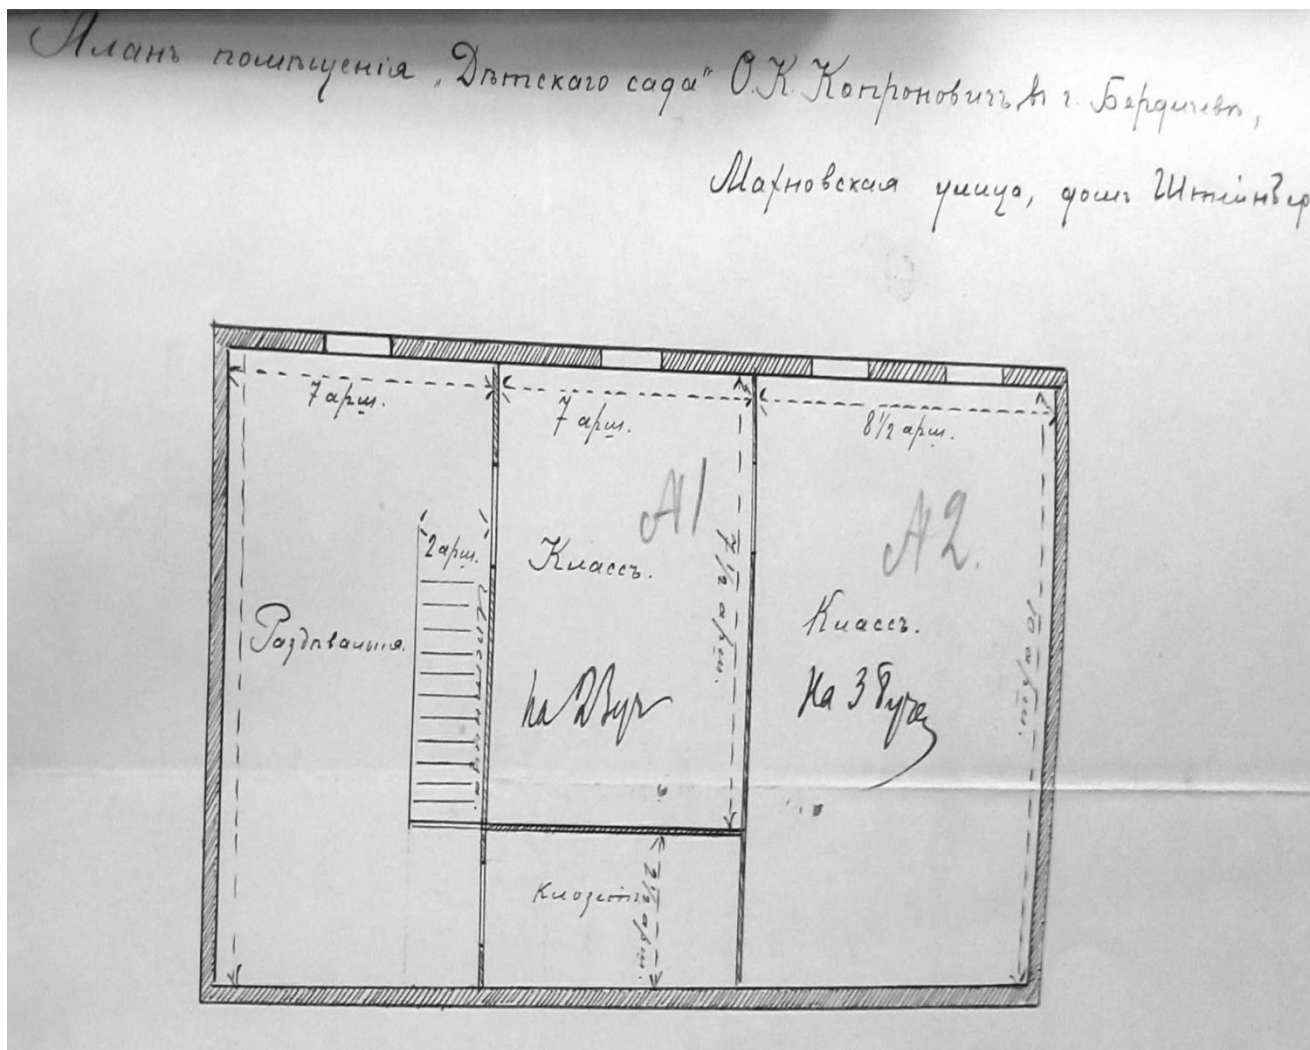 Планъ помѣщенія „Дѣтскаго сада“ О.К. Копроновичъ въ г. Бердичевѣ,
Махновская улица, домъ
7 арш.
7 арш.
8 1/2 арш.
А1
А2.
2 арш.
Классъ.
7 1/2 арш.
Раздѣвальня.
Лѣстница.
Классъ.
10 арш.
на
На
Клозетъ
2 1/2 арш.